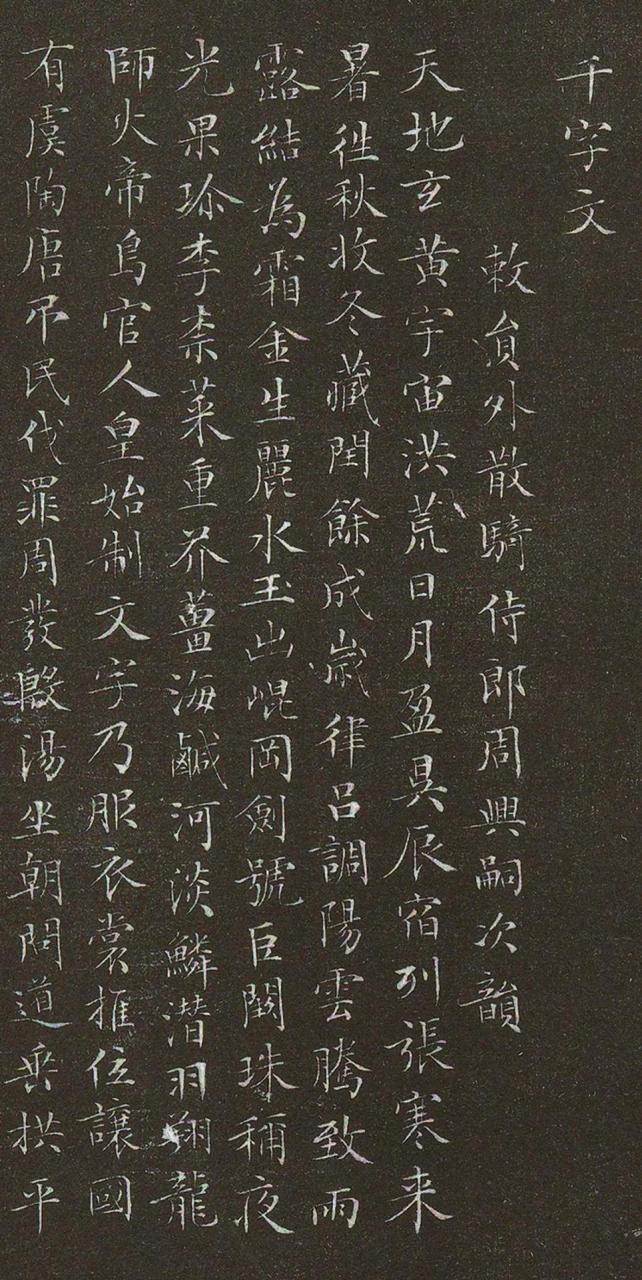 千字文
敕員外散騎侍郎周興嗣次韻
天地玄黃宇宙洪荒日月盈昃辰宿列張寒来
暑往秋收冬藏閏餘成歲律呂調陽雲騰致雨
露結為霜金生麗水玉出崐岡劍號巨闕珠稱夜
光果珍李柰菜重芥薑海鹹河淡鱗潛羽翔龍
師火帝鳥官人皇始制文字乃服衣裳推位讓國
有虞陶唐吊民伐罪周發殷湯坐朝問道垂拱平